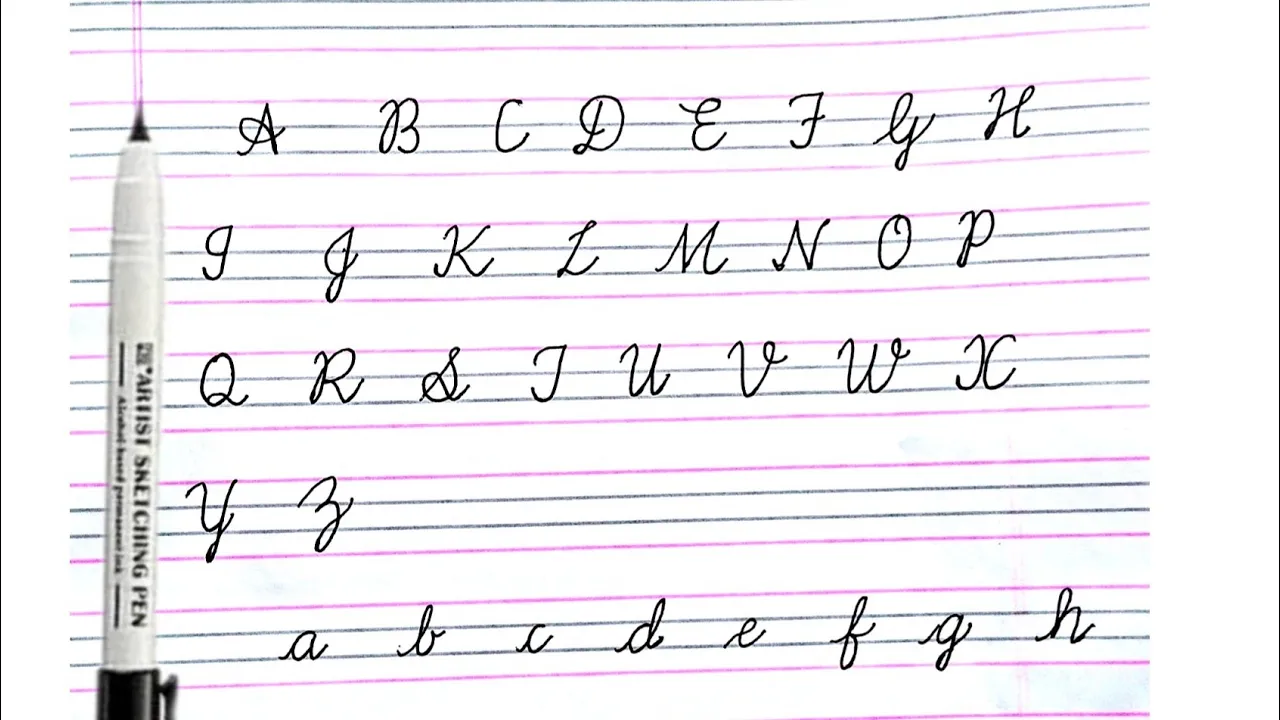 A B C D E F G H
I J K L M N O P
Q R S T U V W X
Y Z
a b c d e f g h
ARTIST SKETCHING PEN
Alcohol-based permanent ink